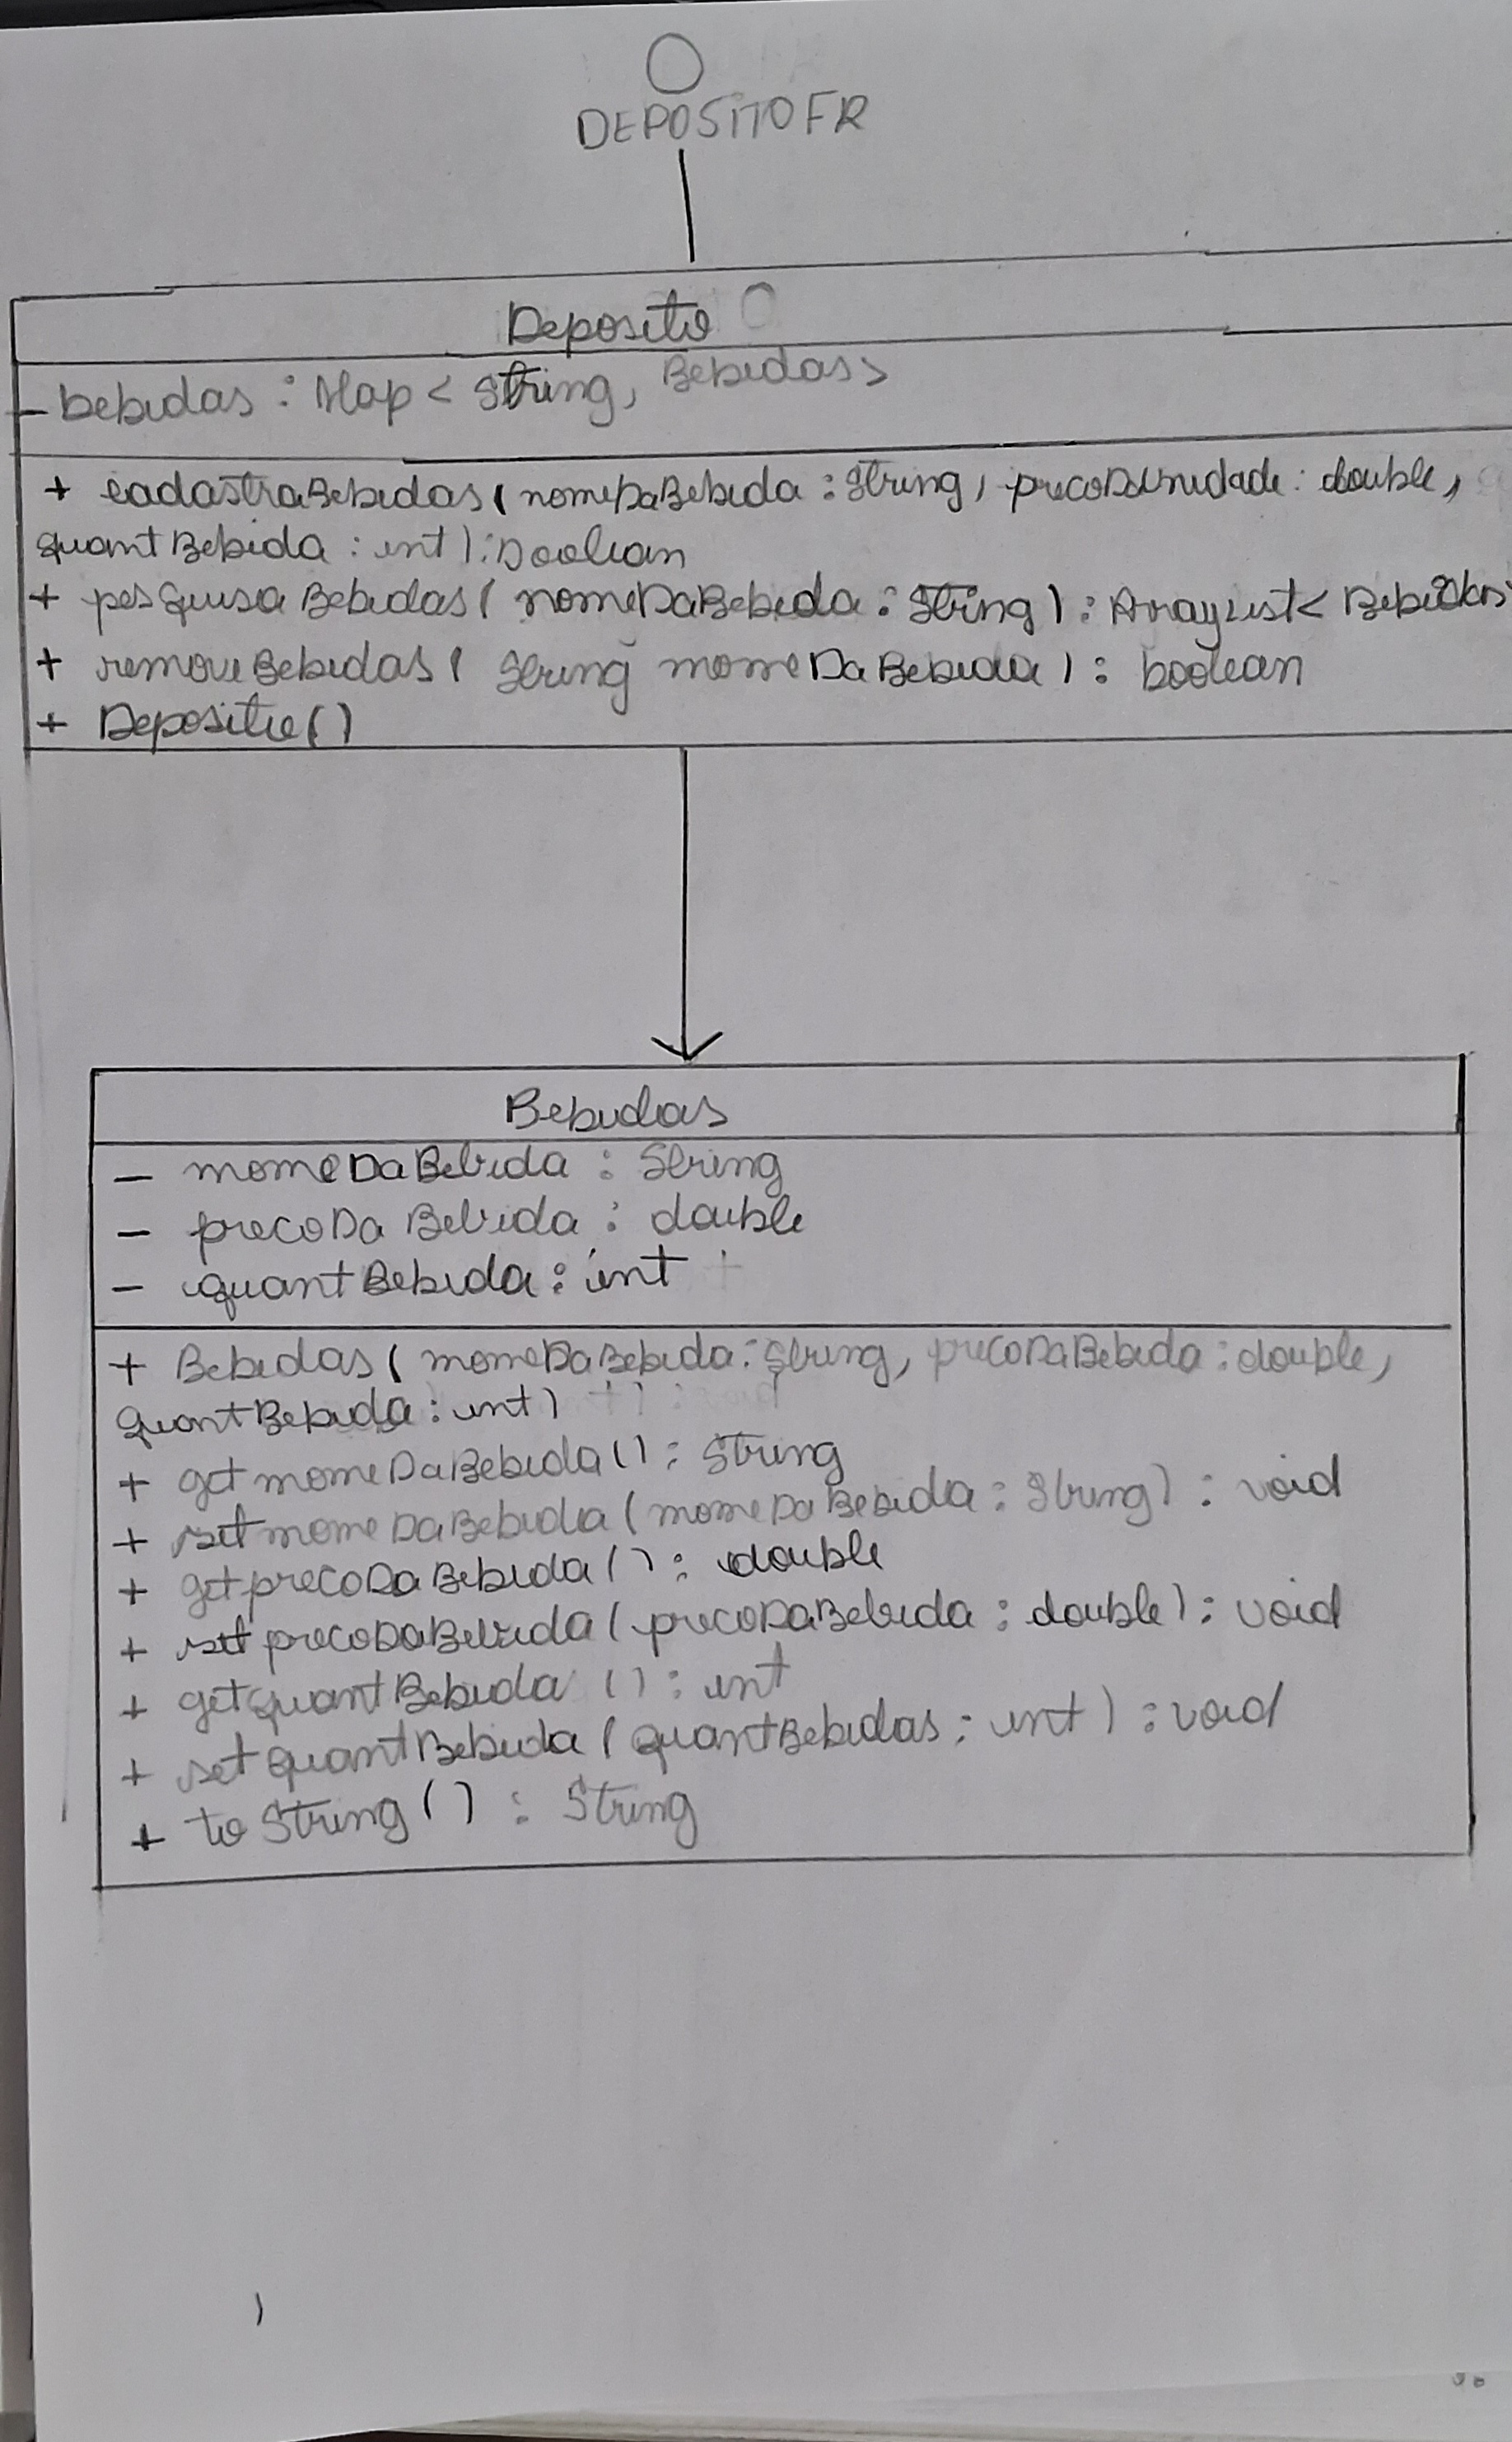 DEPOSITOFR
Deposito
- bebidas : Map < String, Bebidas>
+ cadastraBebidas( nomeDaBebida : String, precoDaUnidade : double,
quantBebida : int ) : Boolean
+ pesquisaBebidas( nomeDaBebida : String ) : ArrayList< Bebidas>
+ removeBebidas( String nomeDaBebida ) : boolean
+ Deposito()
Bebidas
- nomeDaBebida : String
- precoDaBebida : double
- quantBebida : int
+ Bebidas( nomeDaBebida : String, precoDaBebida : double,
quantBebida : int )
+ getnomeDaBebida() : String
+ setnomeDaBebida (nomeDaBebida : String) : void
+ getprecoDaBebida() : double
+ setprecoDaBebida( precoDaBebida : double) : void
+ getquantBebida () : int
+ setquantBebida ( quantBebidas : int ) : void
+ toString() : String